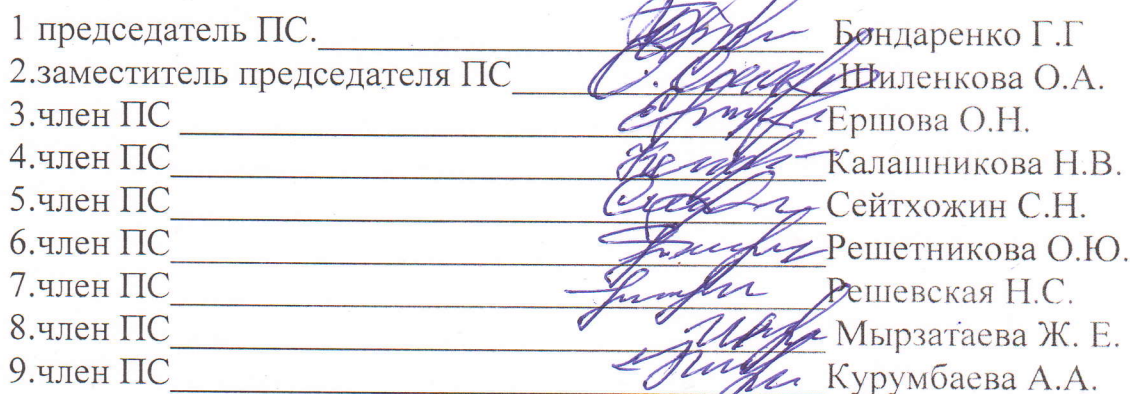 1 председатель ПС.____________________ Бондаренко Г.Г
2.заместитель председателя ПС____________________ Шиленкова О.А.
3.член ПС ____________________ Ершова О.Н.
4.член ПС____________________ Калашникова Н.В.
5.член ПС____________________ Сейтхожин С.Н.
6.член ПС____________________ Решетникова О.Ю.
7.член ПС____________________ Решевская Н.С.
8.член ПС____________________ Мырзатаева Ж. Е.
9.член ПС____________________ Курумбаева А.А.